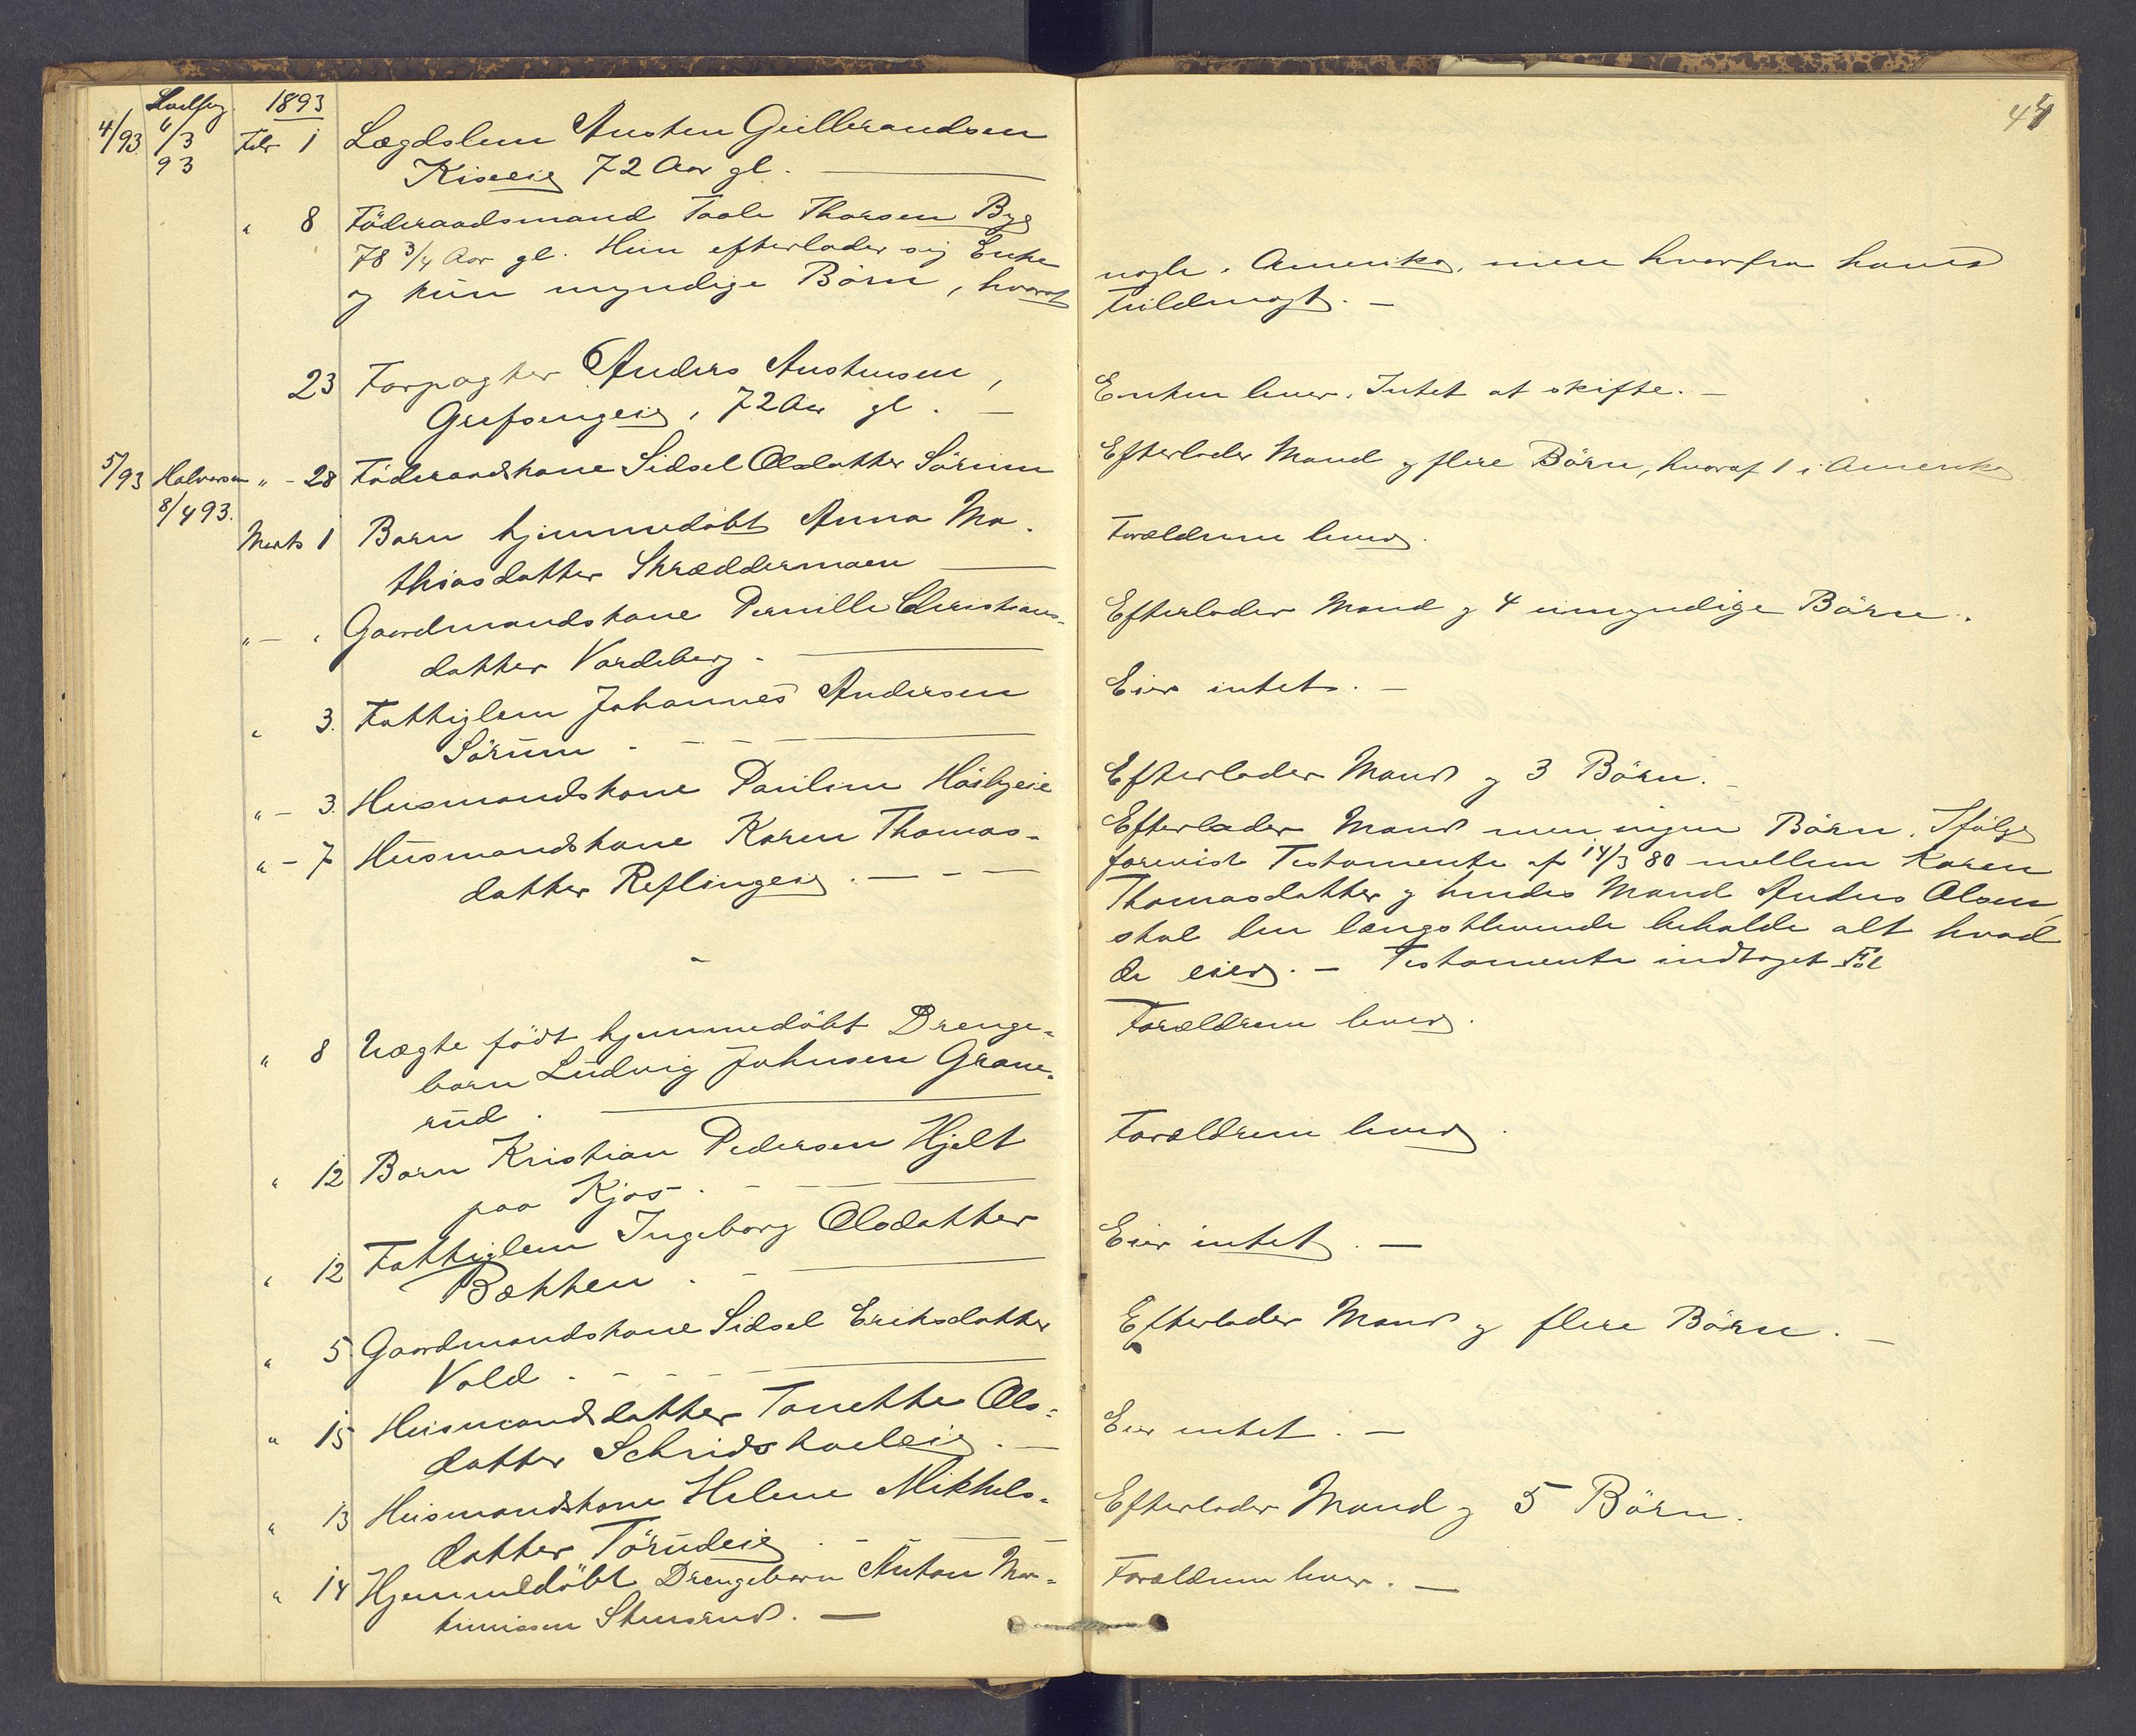 44
1893
4/93 /3 Febr 1 Lægdslem Austen Gullerandsen
93 Kiseeie 72 Aar gl. —
" 8 Föderaadsmand Taale Thorsen Byg
78 3/4 Aar gl. Hun efterlader sig Enke
og kun myndige Börn, hvoraf
nogle i Amerika, men hvorfra haves
Fuldmagt. —
23 Forpagter Anders Austensen,
Grefsengeie, 72 Aar gl. —
Enken lever. Intet at skifte. —
5/93 Halvorsen " - 28 Föderaadskone Sidsel Olsdatter Sörum
8/4 93.
Efterlader Mand og flere Börn, hvoraf 1 i Amerika
Marts 1 Barn hjemmedöbt Anna Ma-
thiasdatter Skræddermoen —
Forældrene lever.
" - " Gaardmandskone Pernille Christians-
datter Vardeberg. —
Efterlader Mand og 4 umyndige Börn.
" 3. Fattiglem Johannes Andersen
Sörum. - - —
Eier intet. —
" - 3. Husmandskone Pauline Hösbyeie
Efterlader Mand og 3 Börn. —
" - 7 Husmandskone Karen Thomas-
datter Reflingeie. — - —
Efterlader Mand men ingen Börn. Ifölge
forevist Testamente af 14/3 80 mellem Karen
Thomasdatter og hendes Mand Anders Olsen,
skal den længstlevende beholde alt hvad
de eier. — Testamente indtaget Fol
" 8 Uægte födt hjemmedöbt Drenge-
barn Ludvig Johnsen Grane-
rud. —
Forældrene lever.
" 12 Barn Kristian Pedersen Hjelt
paa Kjos. - - —
Forældrene lever.
" 12 Fattiglem Ingeborg Olsdatter
Bækken. - —
Eier intet. —
" 5 Gaardmandskone Sidsel Eriksdatter
Vold. - - - —
Efterlader Mand og flere Börn. —
" 15 Husmandsdatter Tonette Ols-
datter Schridsholeie. —
Eier intet. —
" 13 Husmandskone Helene Mikkels-
datter Törudeie. - —
Efterlader Mand og 5 Börn.
" 14 Hjemmedöbt Drengebarn Anton Mar-
tinissen Stensrud. —
Forældrene lever. —